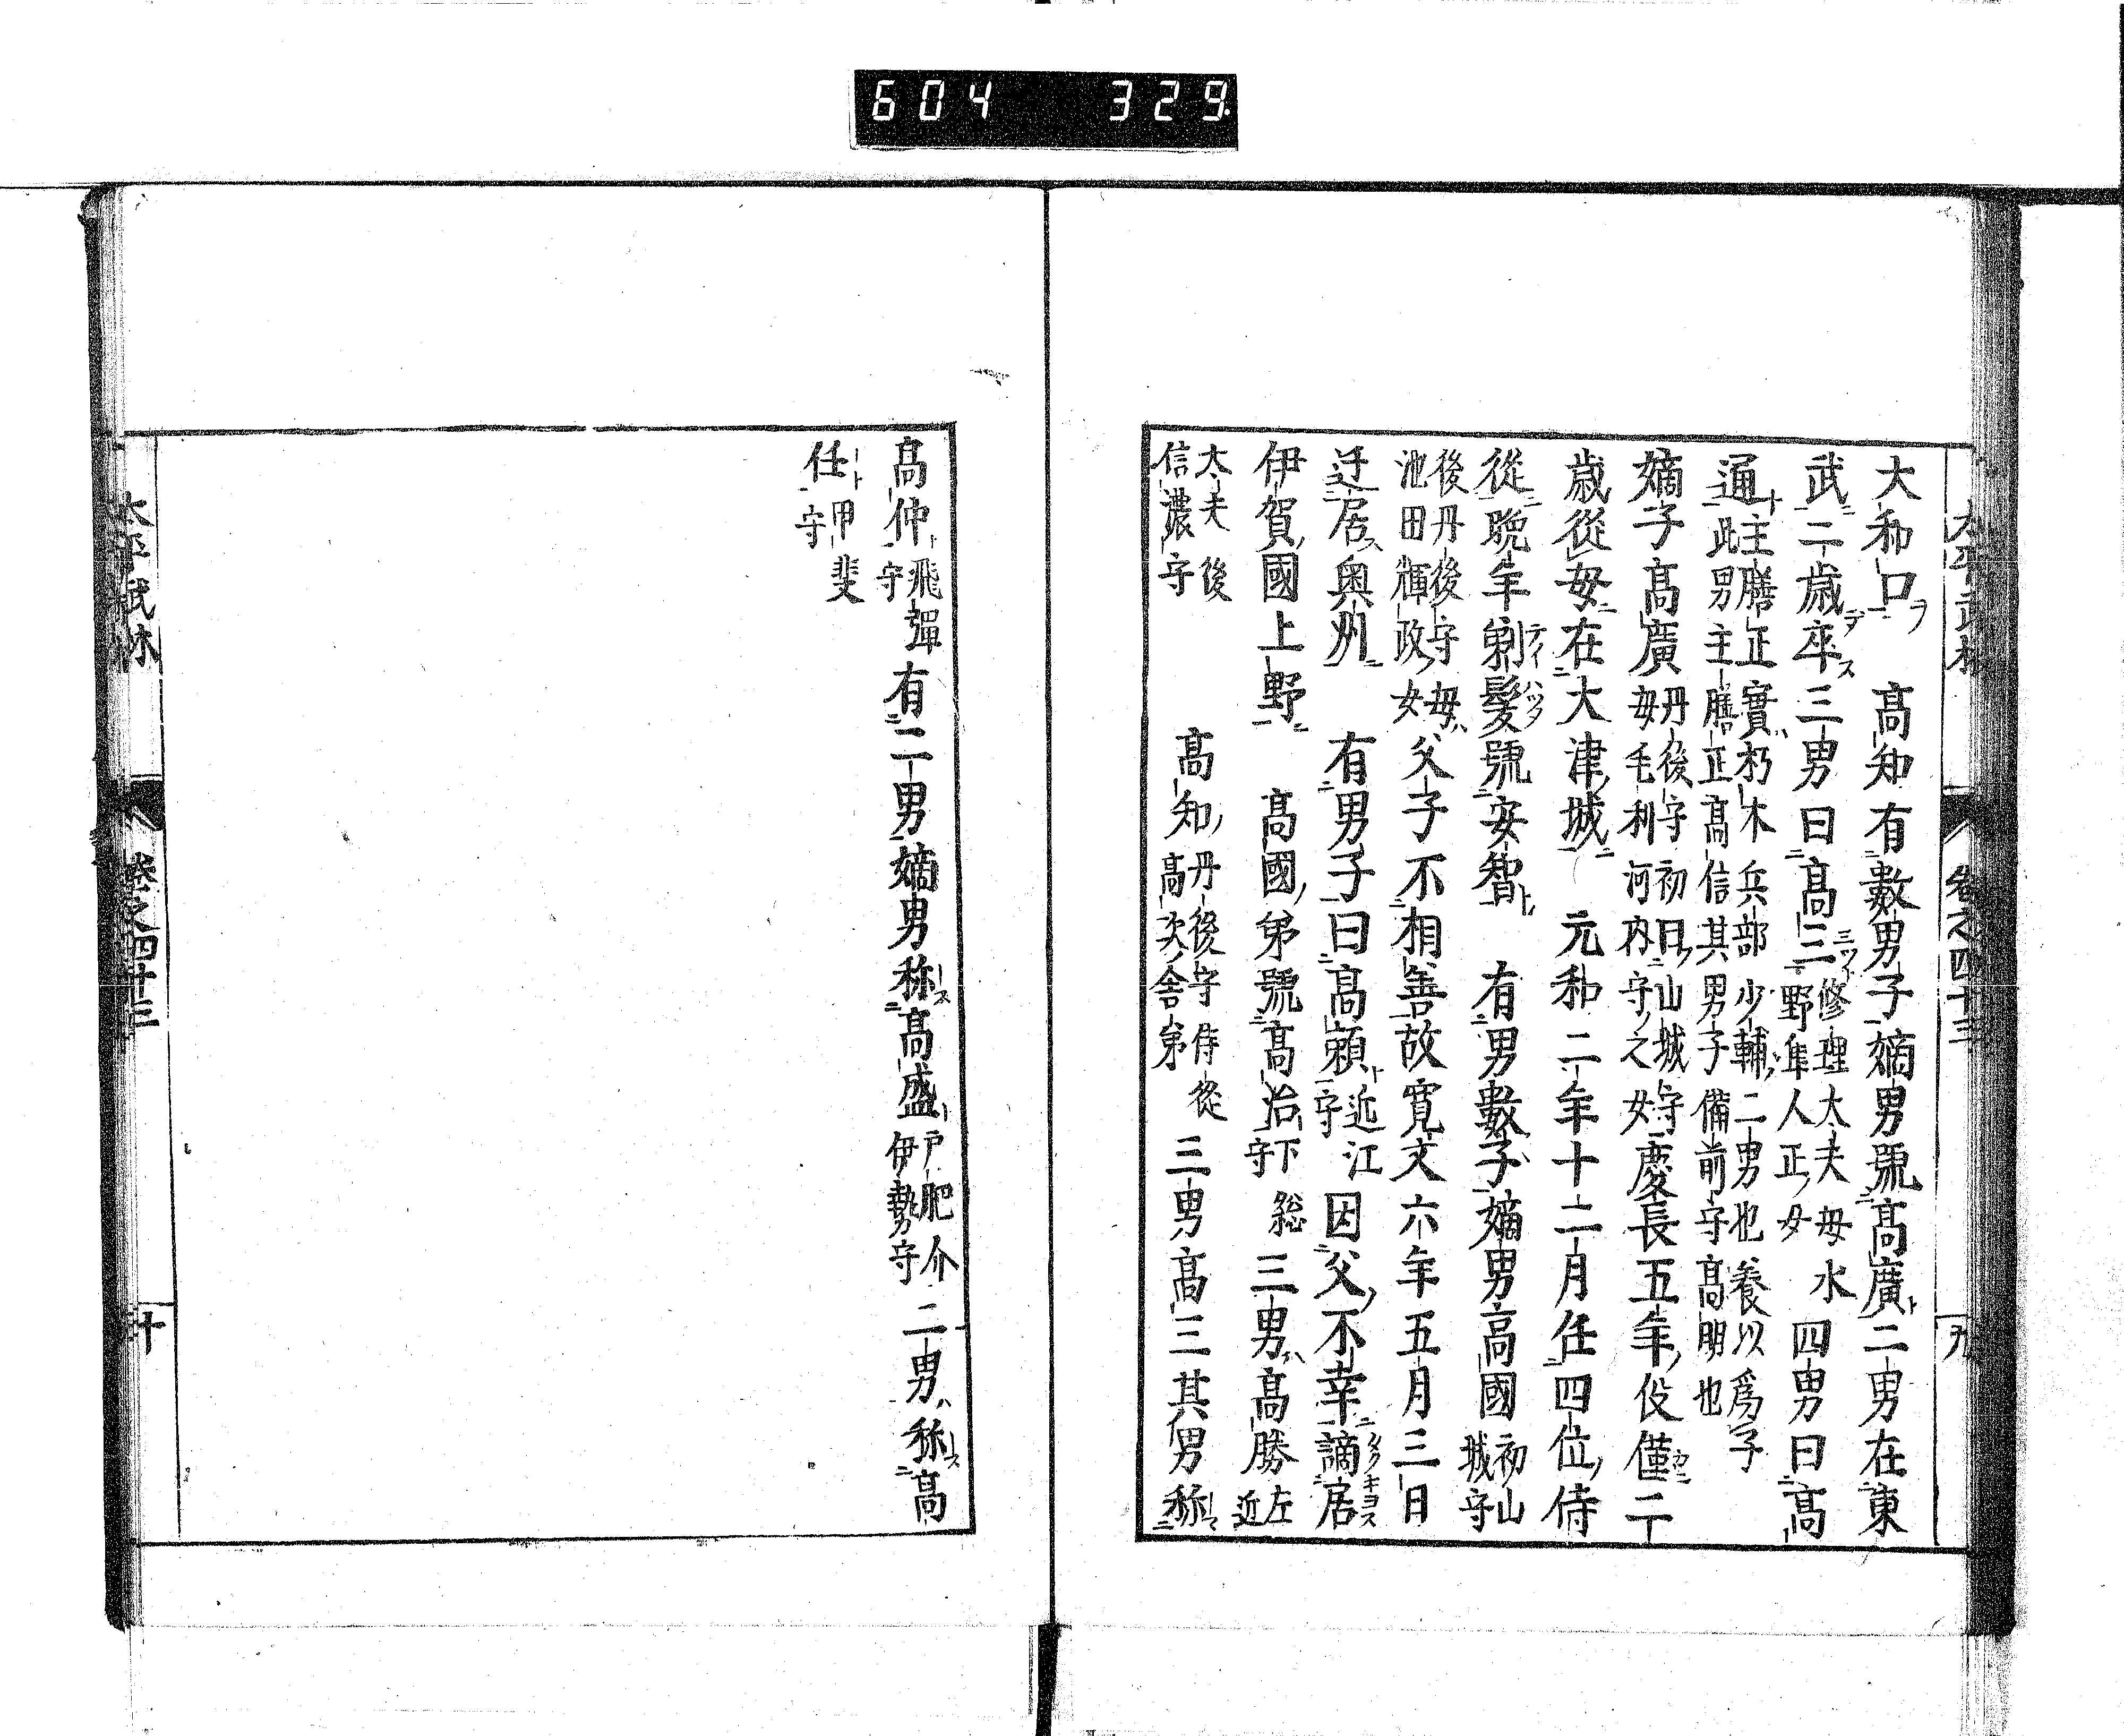 604 329
太平武林 卷之四十三 九
大和口 髙知有數男子嫡男號髙廣二男在東
武二歳卒三男曰髙三修理大夫母水野隼人正女四男曰髙
通主膳正實朽木兵部少輔二男也養以爲子此男主膳正髙信其男子備前守髙明也
嫡子髙廣丹後守初曰山城守母毛利河内守之女慶長五年役僅二
歳從母在大津城 元和二年十二月任四位侍
從晩年剃髮號安智 有男數子嫡男髙國初山城守
後丹後守母池田輝政女父子不相善故寛文六年五月三日
迁居奥州 有男子曰髙頼近江守因父不幸謫居
伊賀國上野 髙國弟號髙治下総守三男髙勝左近
大夫後信濃守 髙知丹後守侍從髙次舎弟 三男髙三其男称
髙仲飛彈守有二男嫡男称髙盛戸肥介伊勢守二男称髙
任甲斐守
太平武林 卷之四十三 十